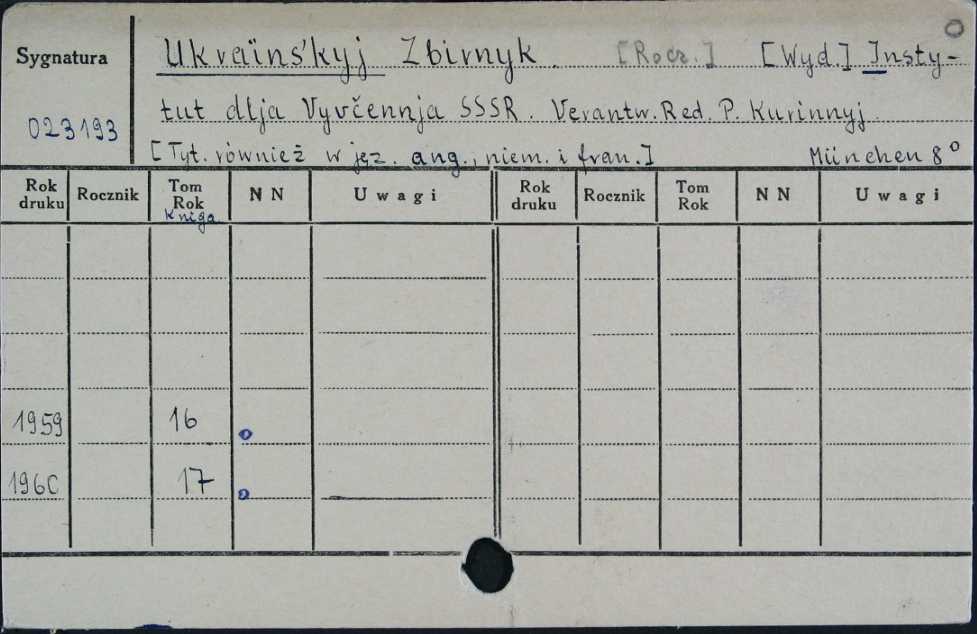 Sygnatura
Ukraïns'kyj Zbirnyk. [Rocz.] [Wyd.] Insty-
tut dlja Vyvčennja SSSR. Verantw. Red. P. Kurinnyj.
023193
[Tyt. również w jęz. ang., niem. i fran.] München 8°
Rok druku Rocznik Tom Rok NN Uwagi Rok druku Rocznik Tom Rok NN Uwagi
Kniga
1959 16
1960 17